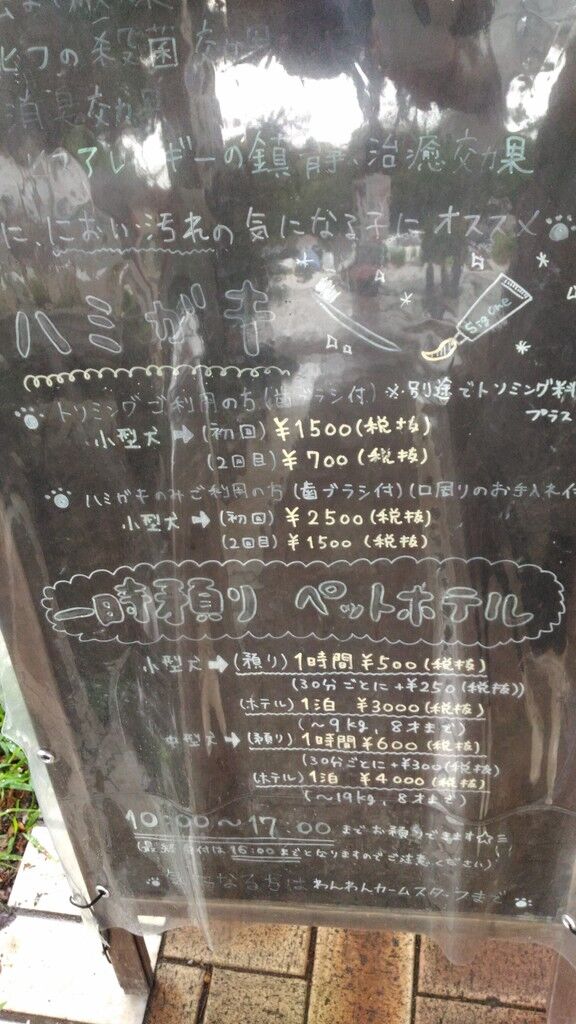 ヒフの殺菌効果
消臭効果
アレルギーの鎮静、治癒効果
に、におい汚れの気になる子にオススメ
ハミガキ
Sig one
トリミングご利用のち(歯ブラシ付)※別途でトリミング料
プラス
小型犬➡(初回)¥1500(税抜)
(2回目)¥700(税抜)
ハミガキのみご利用のち(歯ブラシ付)(口周りのお手入れ付
小型犬➡(初回)¥2500(税抜)
(2回目)¥1500(税抜)
一時預り ペットホテル
小型犬➡(預り)1時間¥500(税抜)
(30分ごとに+¥250(税抜))
(ホテル)1泊 ¥3000(税抜)
(〜9kg、8才まで)
中型犬➡(預り)1時間¥600(税抜)
(30分ごとに+¥300(税抜)
(ホテル)1泊 ¥4000(税抜)
(〜19kg、8才まで)
10:00〜17:00までお預りできます☆
(最終受付は16:00までとなりますのでご注意ください)
気になる方はわんわんカームスタッフまで